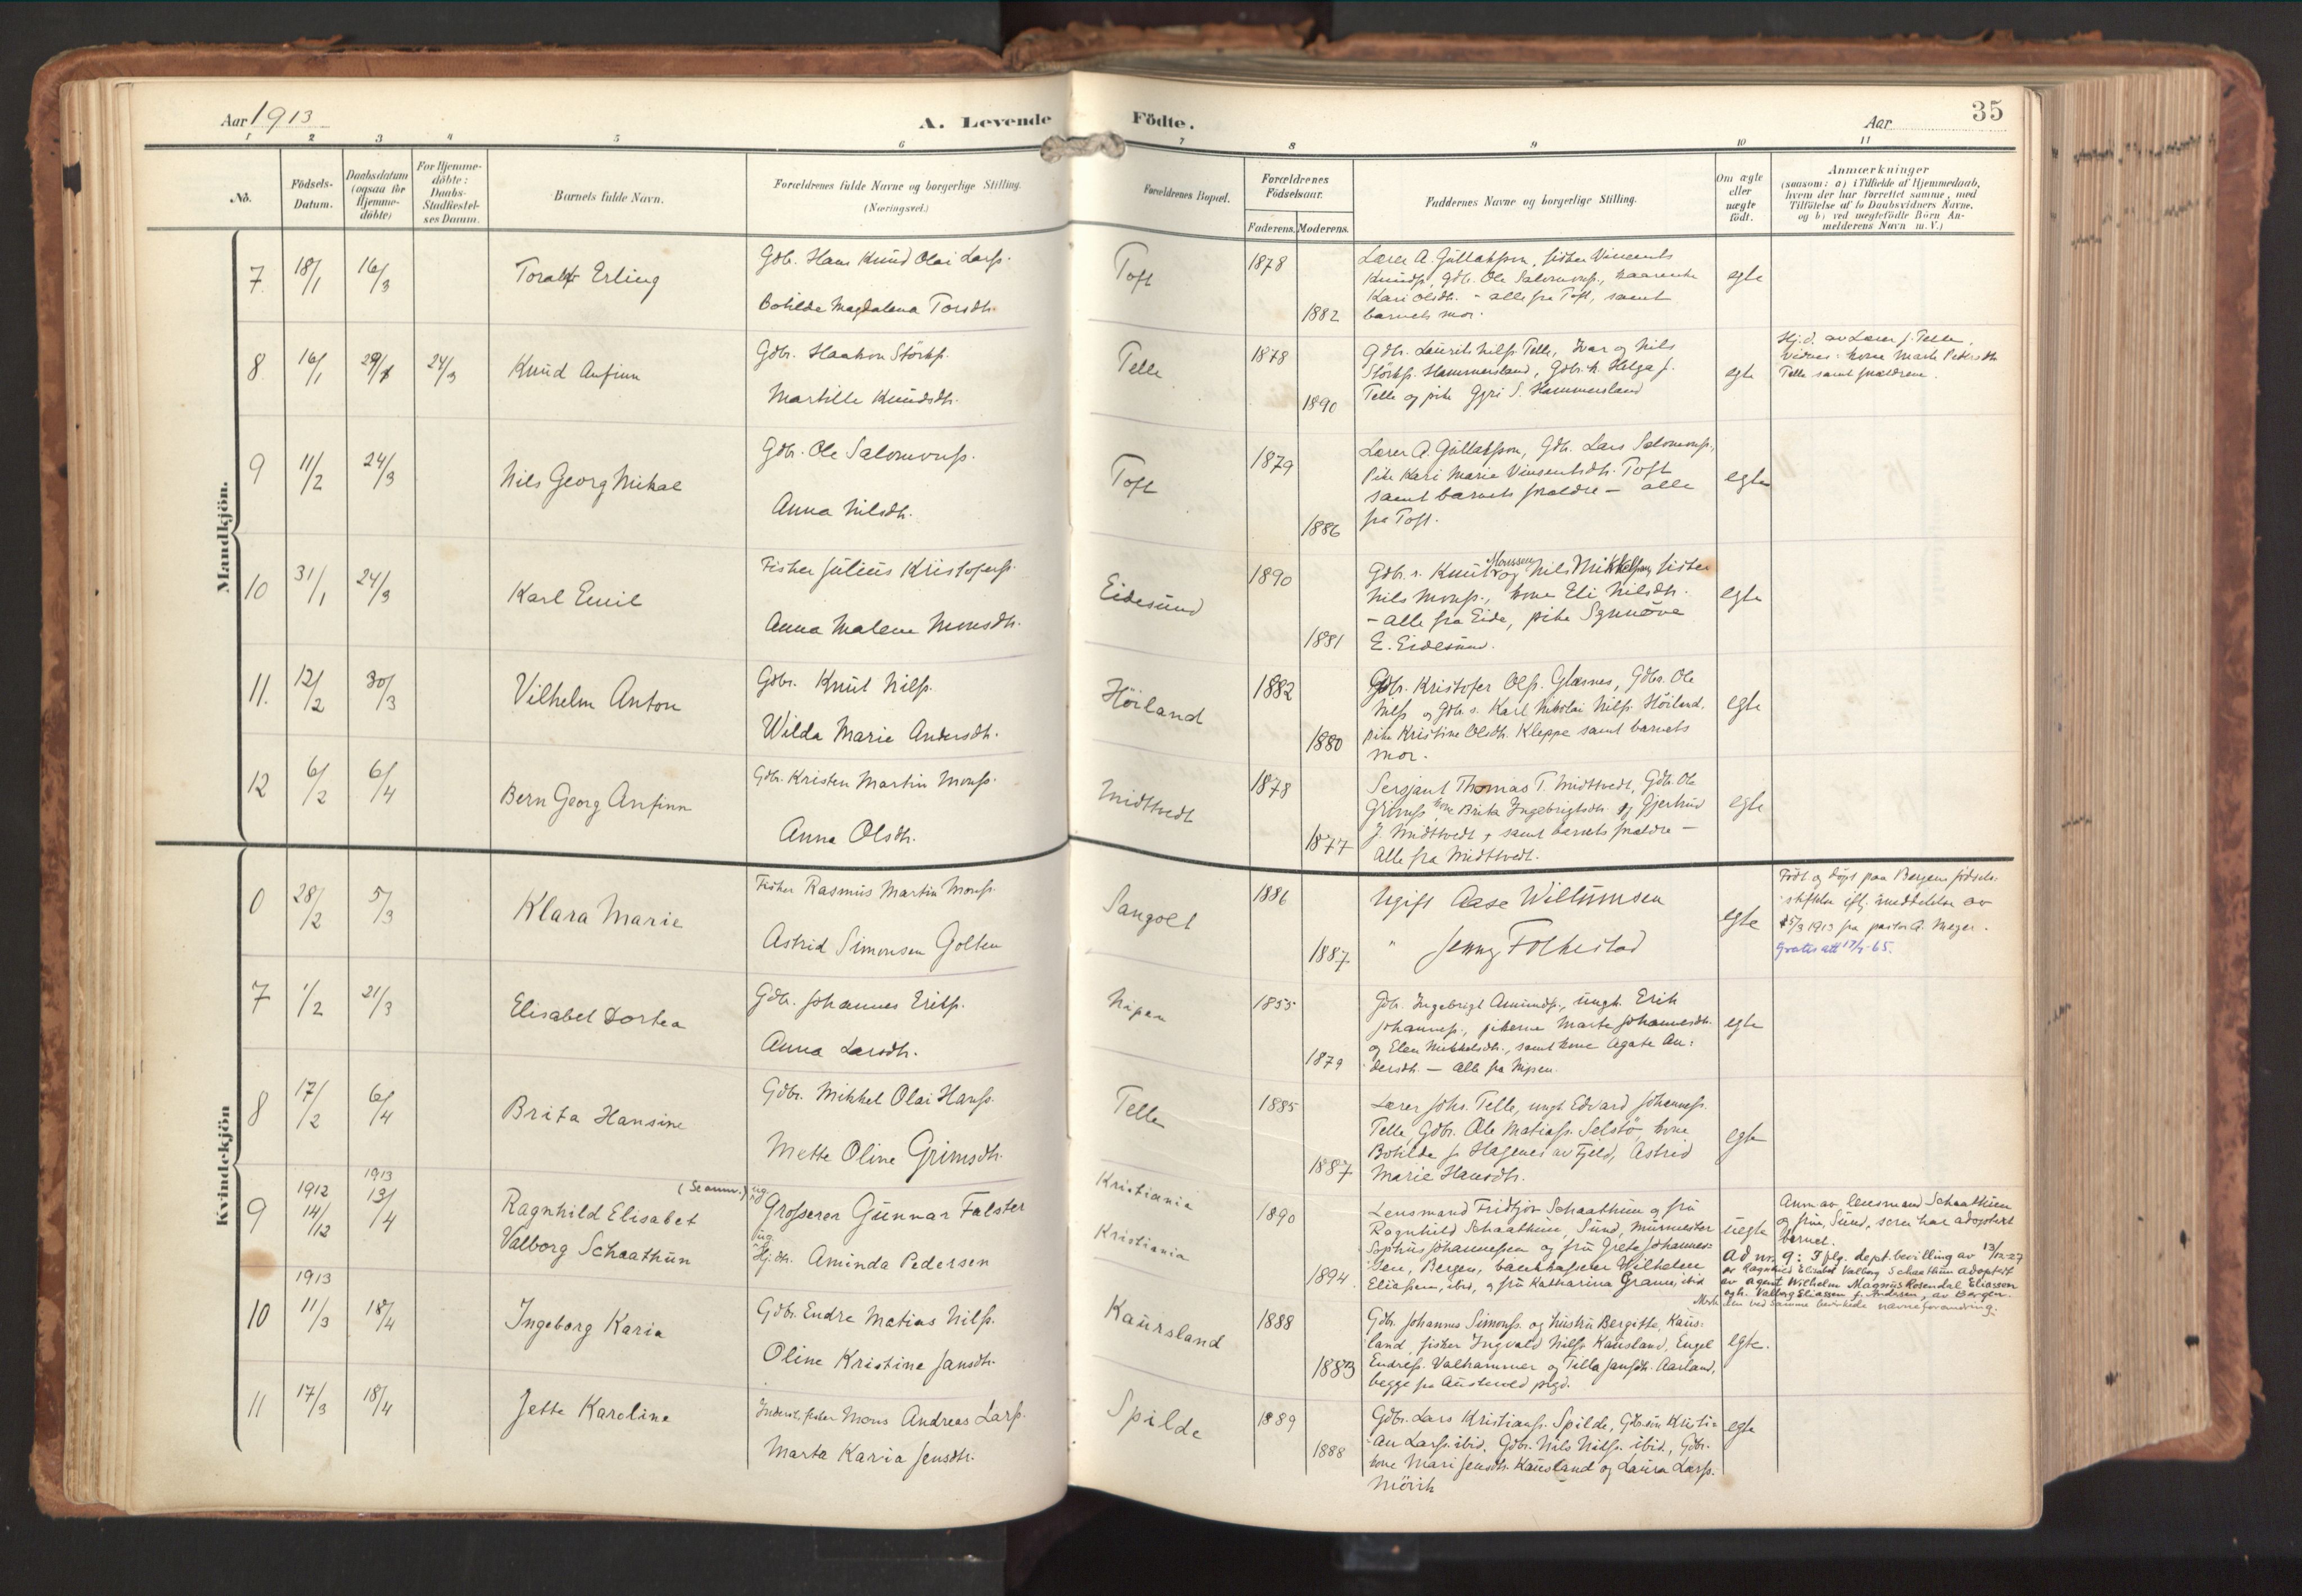 Aar 1913
A. Levende
Födte.
Aar
35
1 2 3 4 5 6 7 8 9 10 11
No.
Födsels-
Datum.
Daabsdatum
(ogsaa for
Hjemme-
döbte)
For Hjemme-
döbte:
Daabs-
Stadfæstel-
ses Datum.
Barnets fulde Navn.
Forældrenes fulde Navne og borgerlige Stilling.
(Næringsvei.)
Forældrenes Bopæl.
Forældrenes
Födselsaar.
Faderens. Moderens.
Faddernes Navne og borgerlige Stilling.
Om ægte
eller
uægte
födt.
Anmærkninger
(saasom: a) i Tilfælde af Hjemmedaab,
hvem der har forrettet samme, med
Tilföielse af to Daabsvidners Navne,
og b) ved uegtefödte Börn An-
melderens Navn m. V.)
Mandkjön.
7 18/1 16/3
Toralf Erling
Gdbr. Hans Knud Olai Larss.
Botilde Magdalena Torsdtr.
Toft
1878
1882
Lærer A. Gullaksson, fisker Vincents
Knudss., Gdbr. Ole Salomonss.,
Kari Olsdtr. - alle fra Toft, samt
barnets mor.
egte
8 16/1 24/3
Knud Anfinn
Gdbr. Haakon Störkss.
Martille Knudsdtr.
Telle
1878
1890
Gdbr. Laurits Nilss. Telle, Ivar og Nils
Störkss. Hammersland, Gdbr. k. Helga J.
Telle og pike Gyri S. Hammersland
egte
Hj.d. av Lærer J. Telle.
Vidner: kone Marta Pedersdtr.
Telle samt forældrene.
9 11/2 24/3
Nils Georg Mikal
Gdbr. Ole Salomonss.
Anna Nilsdtr.
Toft
1879
1886
Lærer A. Gullaksson, Gdbr. Lars Salomonss.,
Pike Kari Marie Vinsentsdtr. Toft
samt barnets forældre - alle
fra Toft.
egte
10 31/1 24/3
Karl Emil
Fisker Julius Kristoferss.
Anna Malene Monsdtr.
Eidesund
1890
1881
Gdbr. s. Knut Monssen og Nils Mikkelsen, fisker
Nils Monss., kone Eli Nilsdtr.
- alle fra Eide, pike Synnöve
E. Eidesund.
egte
11. 12/2 30/3
Vilhelm Anton
Gdbr. Knut Nilss.
Wilda Marie Andersdtr.
Höiland
1882
1880
Gdbr. Kristofer Olss. Glesnes, Gdbr. Ole
Nilss og Gdbr. s. Karl Nikolai Nilss. Höiland,
pike Kristine Olsdtr. Kleppe samt barnets
mor.
egte
12 6/2 6/4
Bern Georg Anfinn
Gdbr. Kristen Martin Monss.
Anna Olsdtr.
Midttvedt
1878
1877
Sersjant Thomas T. Midttvedt, Gdbr. Ole
Grimss., kone Brita Ingebrigtsdtr. og Gjertrud
J. Midttvedt, samt barnets forældre -
Alle fra Midttvedt.
egte
Kvindekjön
0 28/2 5/3
Klara Marie
Fisker Rasmus Martin Monss.
Astrid Simonsen Golten
Sangolt
1886
1887
Ugift Aase Willumsen
" Jenny Folkestad
egte
Födt og döpt paa Bergens födsels-
stiftelse eftr. meddelelse av
5/3 1913 fra pastor A. Meyer.
Gratis att 17/ -65.
7 1/2 21/3
Elisabet Dortea
Gdbr. Johannes Erikss.
Anna Larsdtr.
Nipen
1855
1879
Gdb. Ingebrigt Amundss., ungk. Erik
Johanness., pikerne Marta Johannesdtr.
og Elen Mikkelsdtr., samt kone Agate An-
dersdtr. - alle fra Nipen.
egte
8 17/2 6/4
Brita Hansine
Gdbr. Mikkel Olai Hanss.
Mette Oline Grimsdtr.
Telle
1885
1887
Lærer Johs. Telle, ungk. Edvard Johanness.
Telle, Gdbr. Ole Matiass. Selstö, kone
Botilde J. Hagenes av Fjeld, Astrid
Marie Hansdtr.
egte
9 1912 14/12 1913 13/4
(Se anm.)
Ragnhild Elisabet
Valborg Schaathun
ug. Grosserer Gunnar Falster
ug. Hj. dtr. Aminda Pedersen
Kristiania
Kristiania
1890
1894
Lensmand Fridtjov Schaathun og fru
Ragnhild Schaathun, Sund, murmester
Sophus Johannessen og fru Grete Johannes-
sen, Bergen, bankkasserer Wilhelm
Eliassen, ibid, og fru Katharina Gramer, ibid
uegte
Anm. av lensmand Schaathun
og frue, Sund, som har adoptert
barnet.
Ad nr. 9: Iflg. dept. bevilling av 13/12-27
er Ragnhild Elisabet Valborg Schaathun adoptert
av agent Wilhelm Magnus Rosendal Eliassen
og h. Valborg Eliassen f. Andersen, av Bergen.
den ved samme bevirkede navneforandring.
1913
10 11/3 18/4
Ingeborg Karia
Gdbr. Endre Matias Nilss.
Oline Kristine Jansdtr.
Kaursland
1888
1883
Gdbr. Johannes Simonss. og hustru Bergitte, Kaus-
land, fisker Ingvald Nilss. Kausland, Engel
Endress. Valhammer og Tilla Jansdtr. Aarland,
begge fra Austevold prgd.
egte.
11 17/3 18/4
Jette Karoline
Inderst, fisker Mons Andreas Larss.
Marta Karia Jensdtr.
Spilde
1889
1888
Gdbr. Lars Kristianss. Spilde, Gdbr. sön Kristi-
an Larss. ibid, Gdbr. Nils Nilss. ibid., Gdbr.
kone Mari Jensdtr. Kausland og Laura Larss.
egte